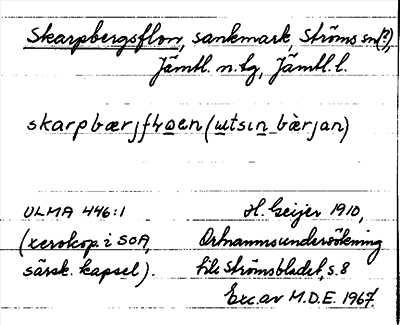 Skarpbergsflon, sankmark, Ströms sn(?),
Jämtl. n. tg, Jämtl. l.
skarpbærjflꞷen (ꞷtsin bàrjan)
ULMA 446:1 H. Geijer 1910,
(xerokop i SOA, Ortnamnsundersökning
särsk. kapsel). till Strömsbladet, s. 8
Exc. av M.D.E. 1967.